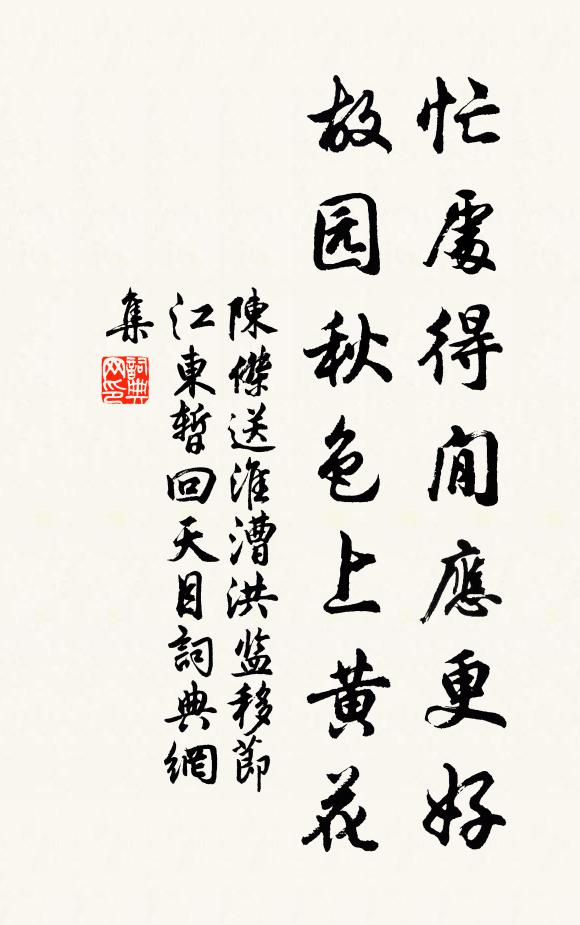 忙處得閒應更好
故园秋色上黄花
陳傑送淮漕洪监移節
江東暫回天目詞典網
集
詞典
网印